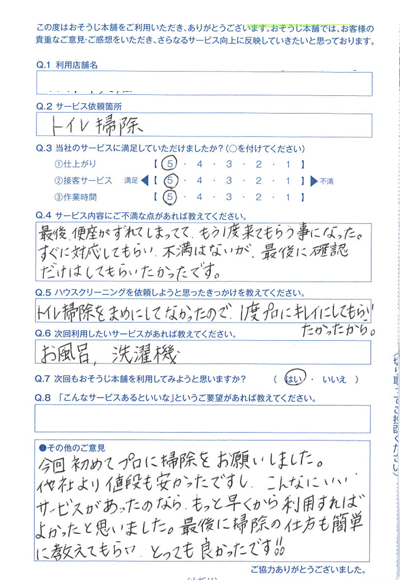 この度はおそうじ本舗をご利用いただき、ありがとうございます。おそうじ本舗では、お客様の
貴重なご意見・ご感想をいただき、さらなるサービス向上に反映していきたいと思っております。
Q.1 利用店舗名
Q.2 サービス依頼箇所
トイレ掃除
Q.3 当社のサービスに満足していただけましたか？（○を付けてください）
①仕上がり 【 5 ・ 4 ・ 3 ・ 2 ・ 1 】
②接客サービス 満足 ◀【 5 ・ 4 ・ 3 ・ 2 ・ 1 】▶ 不満
③作業時間 【 5 ・ 4 ・ 3 ・ 2 ・ 1 】
Q.4 サービス内容にご不満な点があれば教えてください。
最後、便座がずれてしまってて、もう1度来てもらう事になった。
すぐに対応してもらい、不満はないが、最後に確認
だけはしてもらいたかったです。
Q.5 ハウスクリーニングを依頼しようと思ったきっかけを教えてください。
トイレ掃除をまめにしてなかったので、1度プロにキレイにしてもらい
たかったから。
Q.6 次回利用したいサービスがあれば教えてください。
お風呂、洗濯機
Q.7 次回もおそうじ本舗を利用してみようと思いますか？ （ はい ・ いいえ ）
Q.8 「こんなサービスあるといいな」というご要望があれば教えてください。
●その他のご意見
今回初めてプロに掃除をお願いしました。
他社より値段も安かったですし、こんなにいい
サービスがあったのなら、もっと早くから利用すれば
よかったと思いました。最後に掃除の仕方も簡単
に教えてもらい、とっても良かったです!!
ご協力ありがとうございました。